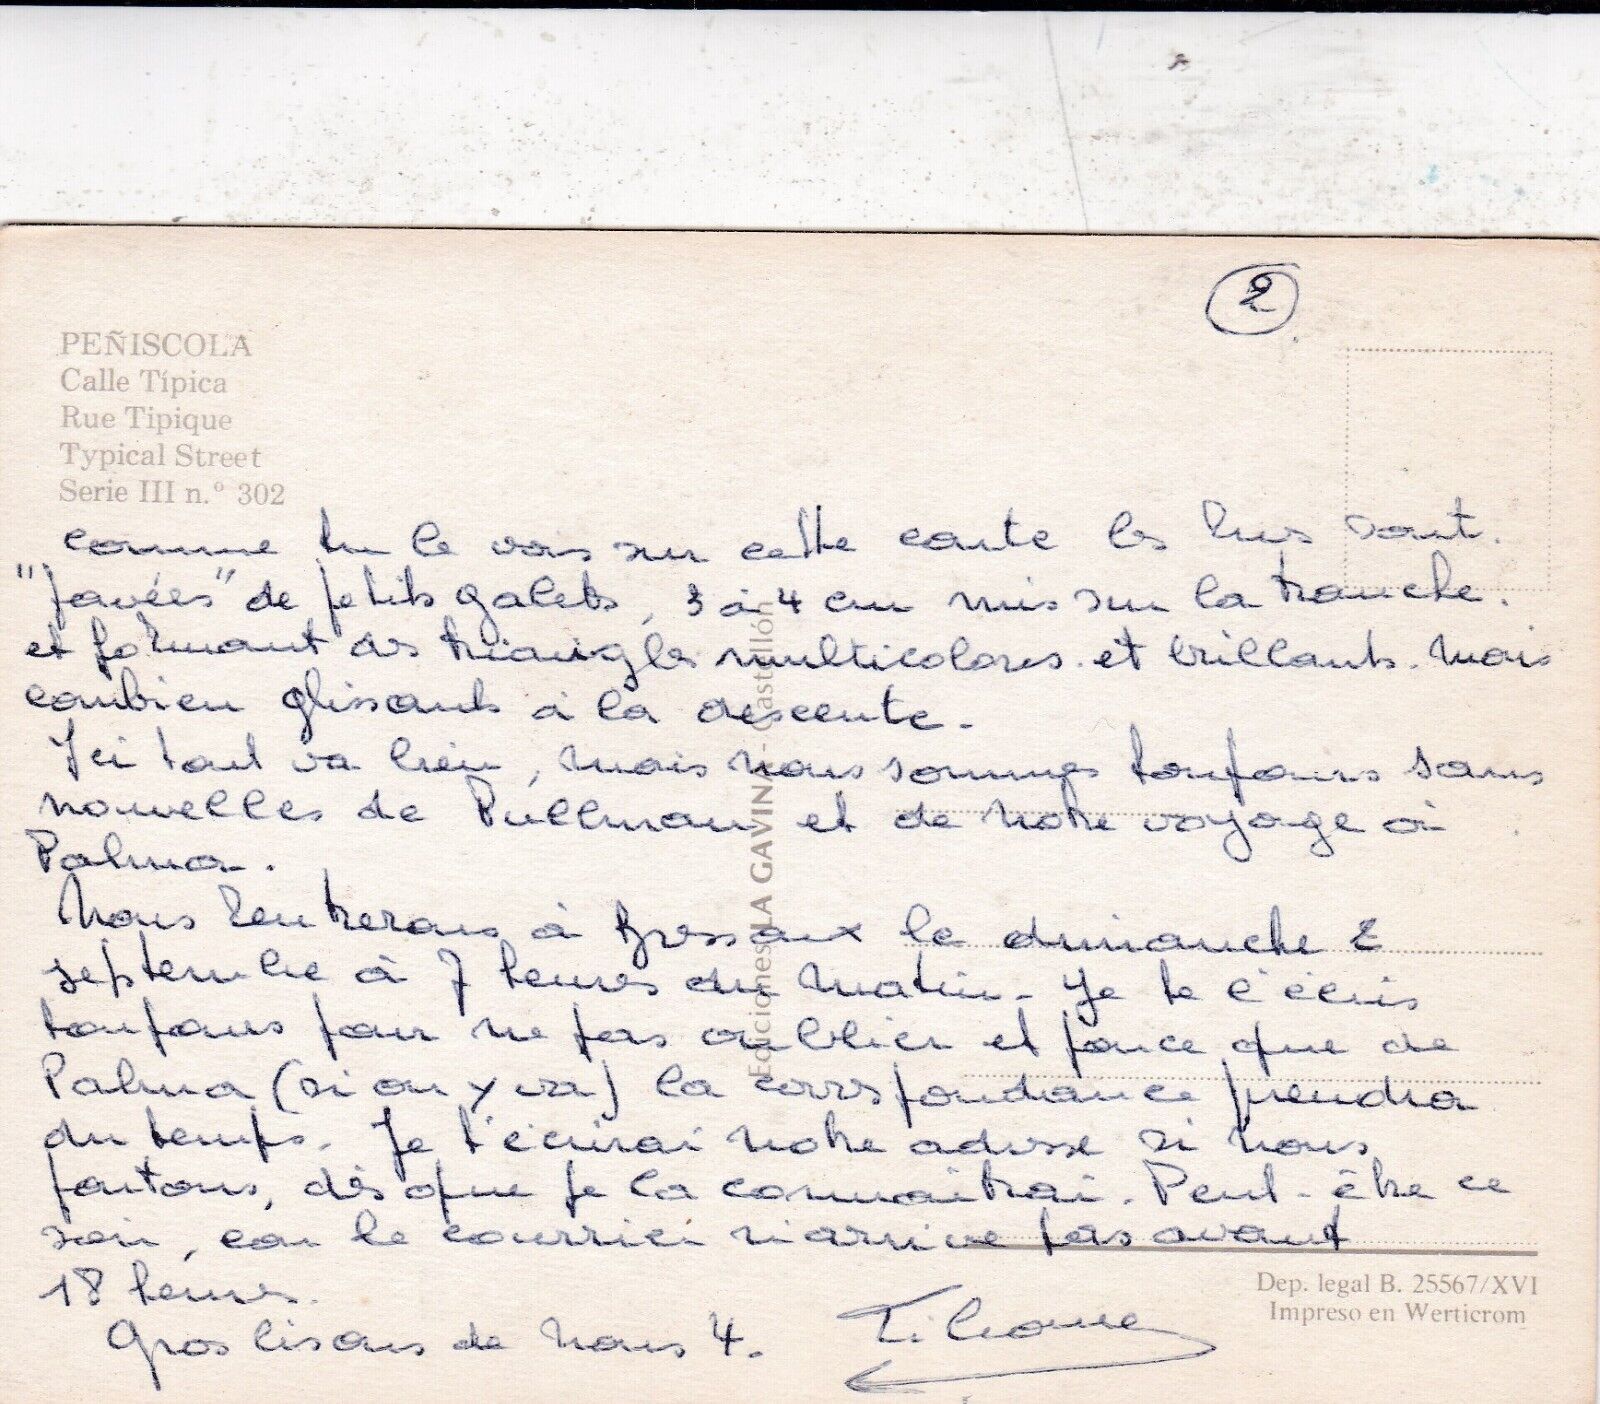 2
PEÑISCOLA
Calle Típica
Rue Tipique
Typical Street
Serie III n.º 302
comme tu le vois sur cette carte les rues sont
"pavées" de petits galets, 3 à 4 cm mis sur la tranche.
et formant des triangles multicolores et brillants. Mais
combien glissants à la descente.
Ici tout va bien, mais nous sommes toujours sans
nouvelles de Pullman et de notre voyage à
Palma.
Nous rentrerons à le dimanche 2
septembre à 7 heures du matin. Je te l'écris
toujours pour ne pas oublier et parce que de
Palma (si on y va) la correspondance prendra
du temps. Je t'écrirai notre adresse si nous
partons, dès que je la connaîtrai. Peut-être ce
soir, car le courrier n'arrive pas avant
18 heures.
Gros bisous de nous 4.
Ediciones LA GAVINA - Castellón
Dep. legal B. 25567/XVI
Impreso en Werticrom